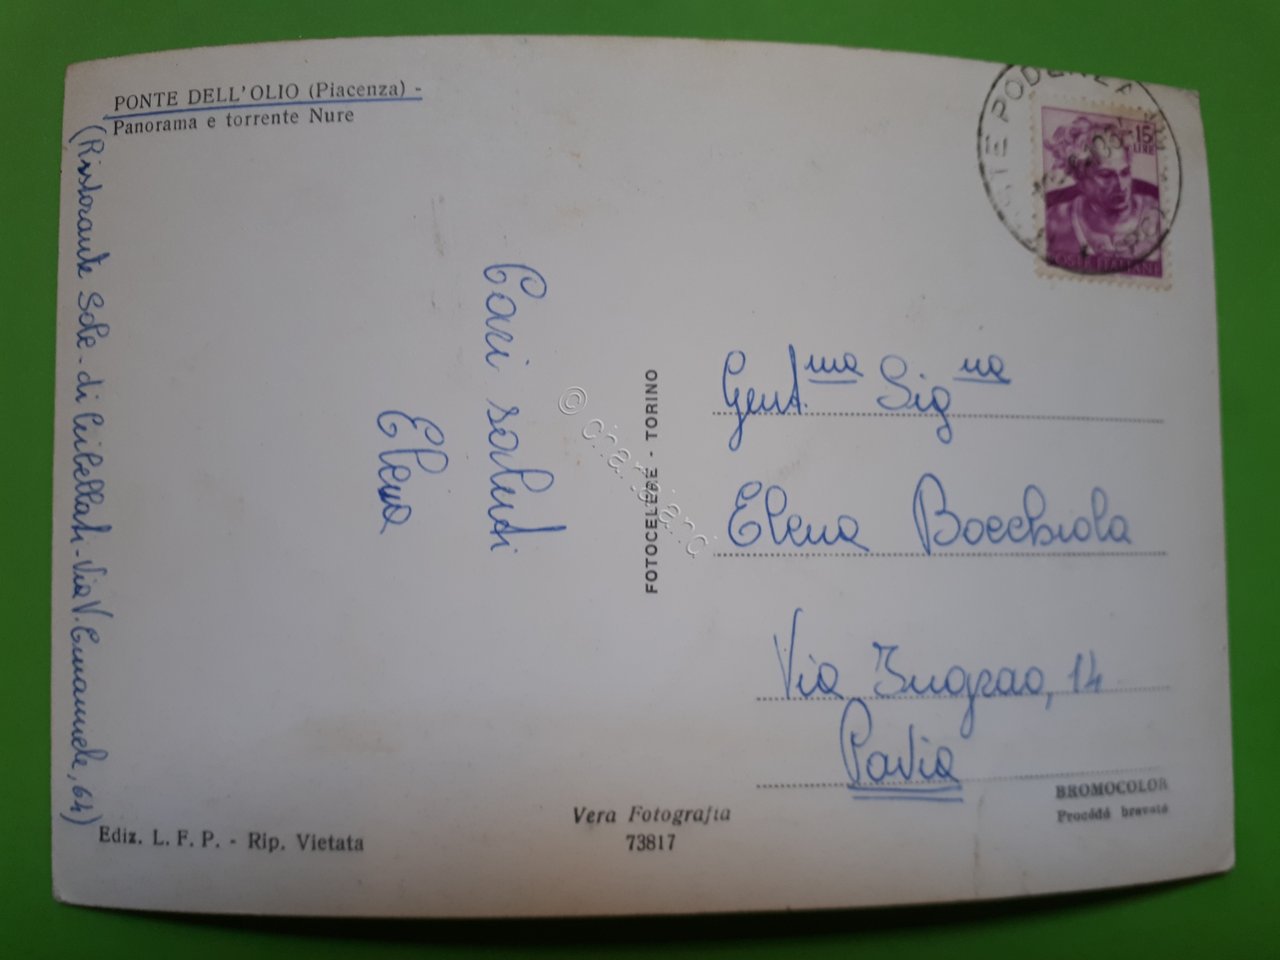 PONTE DELL'OLIO (Piacenza) -
Panorama e torrente Nure
(Ristorante Sole - di Cribellati - Via V. Emanuele, 64)
Cari saluti
Elena
FOTOCELERE - TORINO
15
LIRE
POSTE ITALIANE
Gent.ma Sig.na
Elena Bocchiola
Via Zugrao, 14
Pavia
BROMOCOLOR
Procédé breveté
Vera Fotografia
73817
Ediz. L. F. P. - Rip. Vietata